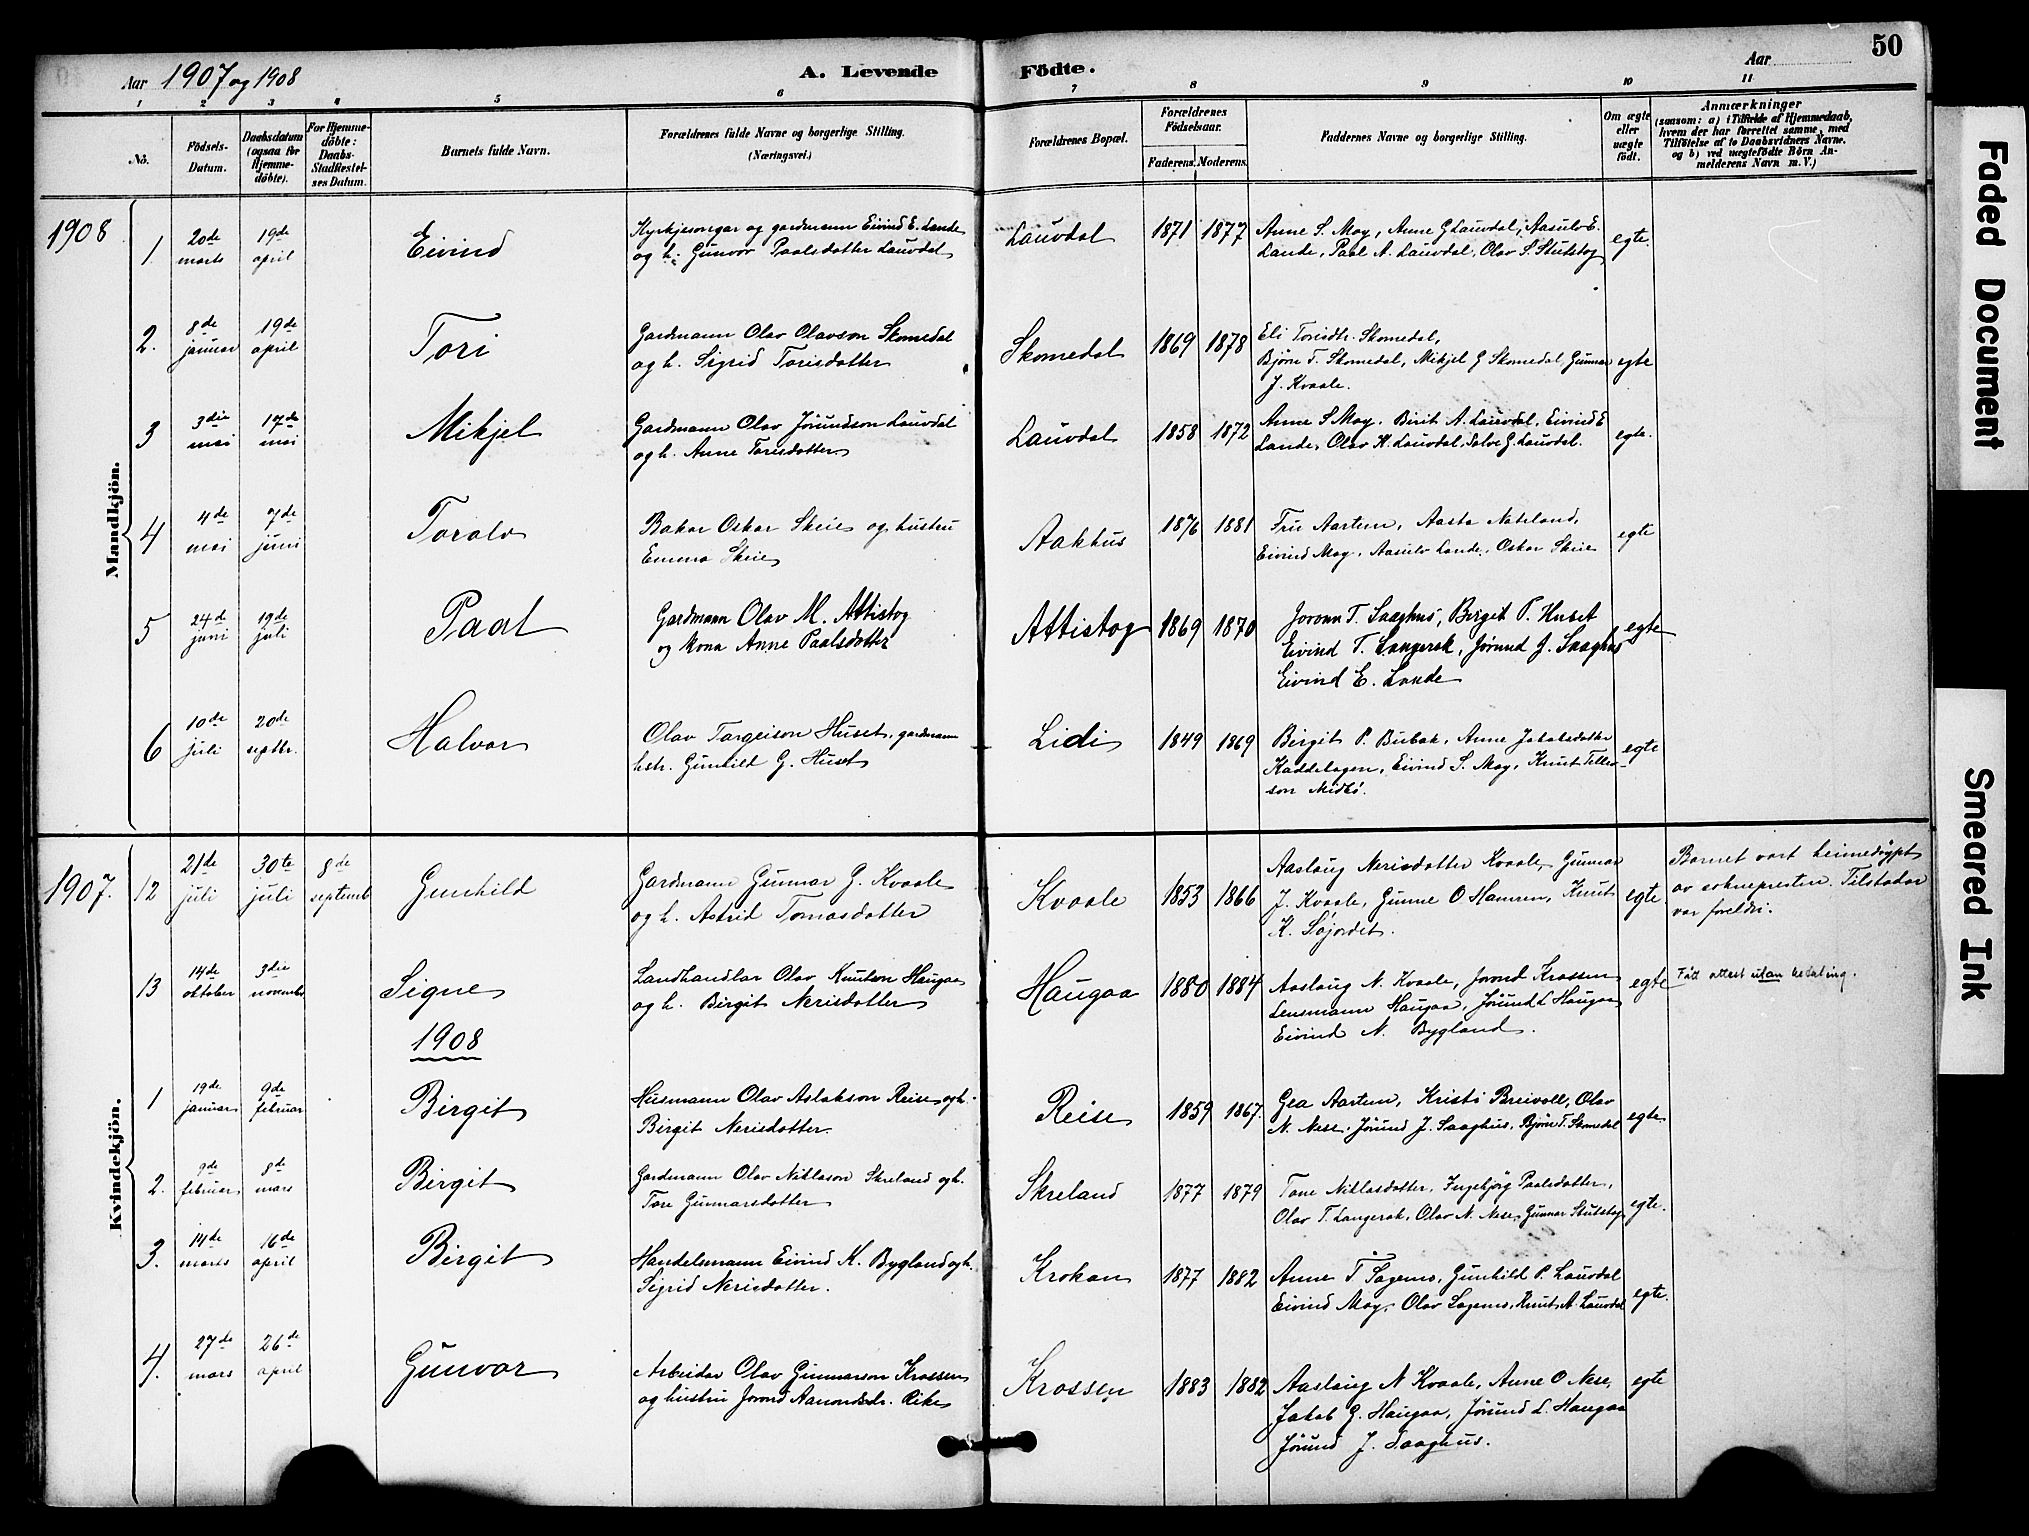 50
Aar 1907 og 1908
A. Levende Födte.
Aar
1 2 3 4 5 6 7 8 9 10 11
No.
Födsels-Datum.
Daabsdatum (ogsaa for Hjemme-döbte).
For Hjemme-döbte: Daabs-Stadfæstel-ses Datum.
Barnets fulde Navn.
Forældrenes fulde Navne og borgerlige Stilling.
(Næringsvei.)
Forældrenes Bopæl.
Forældrenes Födselsaar.
Faderens. Moderens.
Faddernes Navne og borgerlige Stilling.
Om ægte eller uægte födt.
Anmærkninger
(saasom: a) i Tilfælde af Hjemmedaab,
hvem der har forrettet samme, med
Tilföielse af to Daabsvidners Navne.
og b) ved uægtefödte Börn An-
melderens Navn m. V.)
Mandkjön.
1908
1. 20de marts 19de april Eivind
Kyrkjesongar og gardmann Eivind E. Lande
og h. Gunvor Paalsdotter Lauvdal
Lauvdal 1871 1877
Anne S. Moy, Anne G Lauvdal, Aasulv E.
Lande, Paal A. Lauvdal, Olav S. Stutstog
egte.
2. 8de januar 19de april Tori
Gardmann Olav Olavson Skomedal
og h. Sigrid Torisdotter
Skomedal 1869 1878
Eli Torisdtr. Skomedal,
Bjørn T. Skomedal, Mikjel G Skomedal, Gunnar
J. Kvaale.
egte
3 3die mai 17de mai Mikjel
Gardmann Olav Jörundson Lauvdal
og h. Anne Torisdotter
Lauvdal 1858 1872
Anne S Moy, Birit A. Lauvdal, Eivind E
Lande, Olav K. Lauvdal, Salve G. Lauvdal.
egte.
4 4de mai 7de juni Toralv
Bakar Oskar Skeie og hustru
Emma Skeie
Aakhus 1876 1881
Fru Aartun, Aasta Nateland,
Eivind Moy, Aasulv Lande, Oskar Skeie
egte
5 24de juni 19de juli Paal
Gardmann Olav M. Attistog
og kona Anne Paalsdotter
Attistog 1869 1870
Joronn T. Saaghus, Birgit P. Huset
Eivind T. Langerak, Jørund J. Saaghus
Eivind E. Lande
egte
6 10de juli 20de septbr. Halvor
Olav Torgeison Huset, gardmann
hstr. Gunhild G. Huset
Lidi 1849 1869
Birgit P. Bubak, Anne Jakobsdotter
Kaddelagen, Eivind S. Moy, Knut Tellev-
son Midbö.
egte
Kvindekjön.
1907.
12 21de juli 30te juli 8de septemb Gunhild
Gardmann Gunnar G. Kvaale
og h. Astrid Tomasdotter
Kvaale 1853 1866
Aaslaug Nerisdotter Kvaale, Gunnar
J. Kvaale, Gunne O Hamren, Knut
K. Søjordet.
egte
Barnet vart heimedöypt
av soknepresten. Tilstadar
var foreldri.
13 14de oktober 3die november Signe
Landhandlar Olav Knutson Haugaa
og h. Birgit Nerisdotter
Haugaa 1880 1884
Aaslaug N. Kvaale, Jorond Krossen
Lensmann Haugaa, Jörund L Haugaa
Eivind N. Bygland.
egte
Fått attest utan betaling.
1908
1 19de januar 9de februar Birgit
Husmann Olav Aslakson Reise og h.
Birgit Nerisdotter
Reise 1859 1867.
Gea Aartun, Kristi Breivoll, Olav
N. Nese, Jörund J. Saaghus, Bjørn T. Skomedal
egte
2. 9de februar 8de mars Birgit
Gardmann Olav Niklason Skreland og h.
Tore Gunnarsdotter
Skreland 1877 1879
Tone Niklasdotter, Ingebjörg Paalsdotter,
Olav T. Langerak, Olav N. Nese, Gunnar Stutstog
egte.
3. 14de marts 16de april Birgit
Handelsmann Eivind K. Bygland og h.
Sigrid Nerisdotter.
Krokan 1877 1882
Anne T Sagenes, Gunhild P. Lauvdal
Eivind Moy, Olav Sagenes, Knut A. Lauvdal
egte.
4. 27de mars 26de april Gunvor
Arbeidar Olav Gunnarson Krossen
og hustru Jorond Aamondsdr. Rike
Krossen 1883 1882
Aaslaug N Kvaale, Anne O Nese,
Jakob G. Haugaa, Jörund L. Haugaa
Jörund J. Saaghus.
egte
Faded Document
Smeared Ink